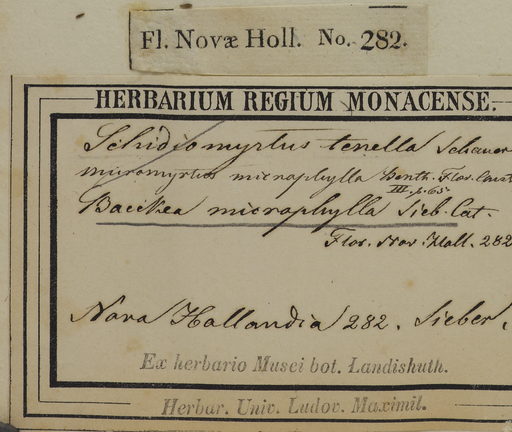 Fl. Novæ Holl. No. 282.
HERBARIUM REGIUM MONACENSE.
Schidiomyrtus tenella Schauer
micromyrtus microphylla Benth. Flor. Aust
III. p. 65
Baeckea microphylla Sieb. Cat.
Flor. Nov. Holl. 282
Nova Hollandia 282. Sieber.
Ex herbario Musei bot. Landishuth.
Herbar. Univ. Ludov. Maximil.